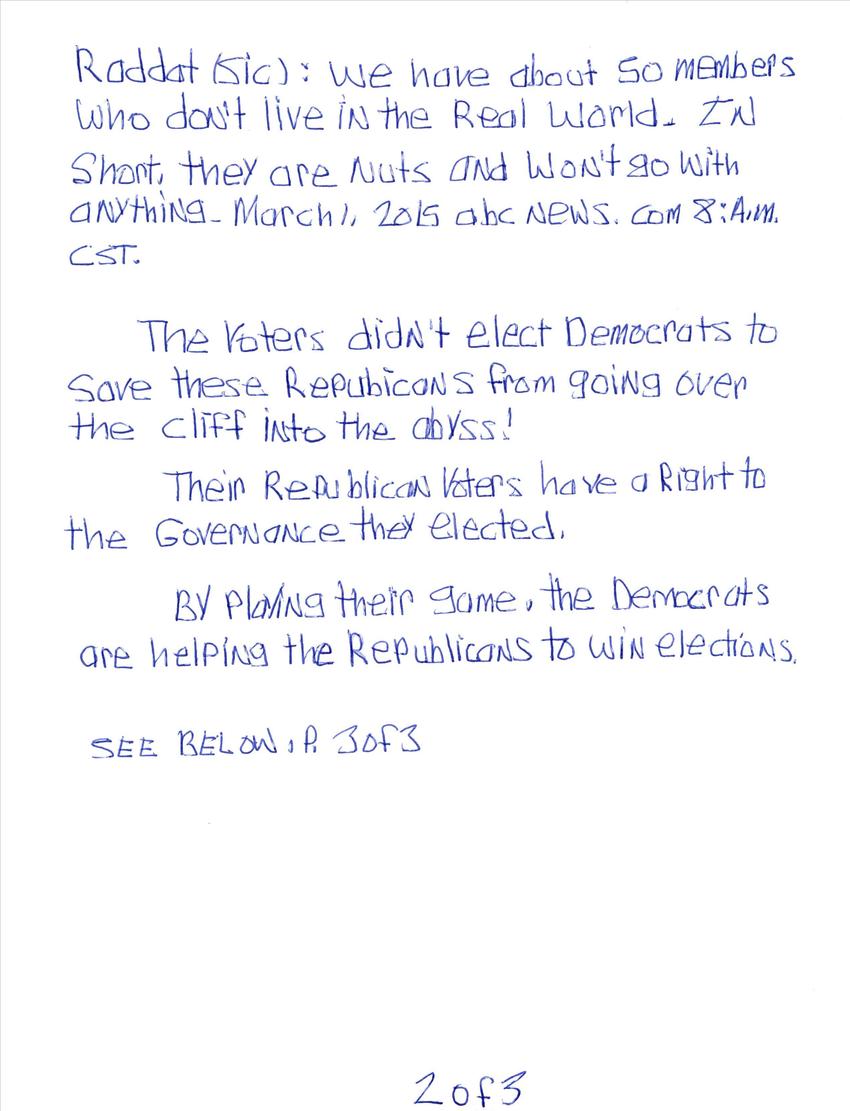 Raddat (sic): We have about 50 members
Who don't live in the Real World. IN
Short, they are Nuts and Won't go With
anything. March 1, 2015 abc NEWS. com 8:A.m.
CST.
The Voters didn't elect Democrats to
Save these Repubicans from going over
the cliff into the abyss!
Their Republican Voters have a Right to
the Governance they elected.
By Playing their game, the Democrats
are helping the Republicans to win elections.
SEE BELOW, P. 3 of 3
2 of 3